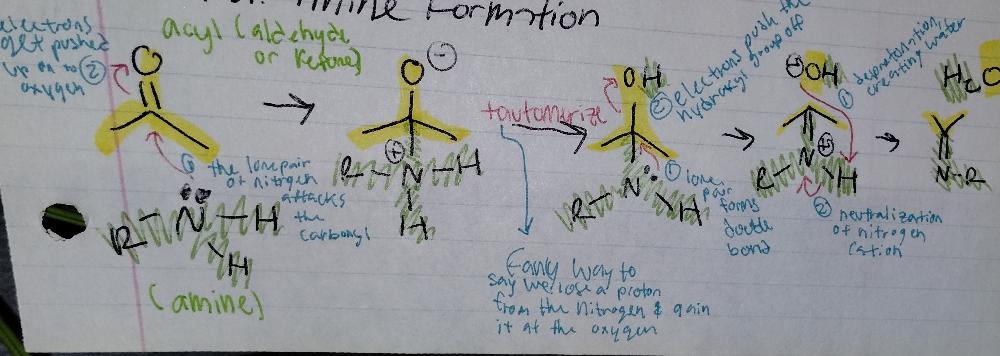 Formation
electrons
get pushed
up on to ②
oxygen
acyl (aldehyde
or ketone)
O
① the lone pair
of nitrogen
attacks
the
carbonyl
R-N-H
H
(amine)
O ⊖
⊕
R-N-H
H
tautomerize
Fancy way to
say we lose a proton
from the nitrogen & gain
it at the oxygen
OH
② electrons push the
hydroxyl group off
R-N H
① lone
pair
forms
double
bond
⊖OH
① deprotonation,
creating water
N ⊕
R H
② neutralization
of nitrogen
cation
H₂O
N-R